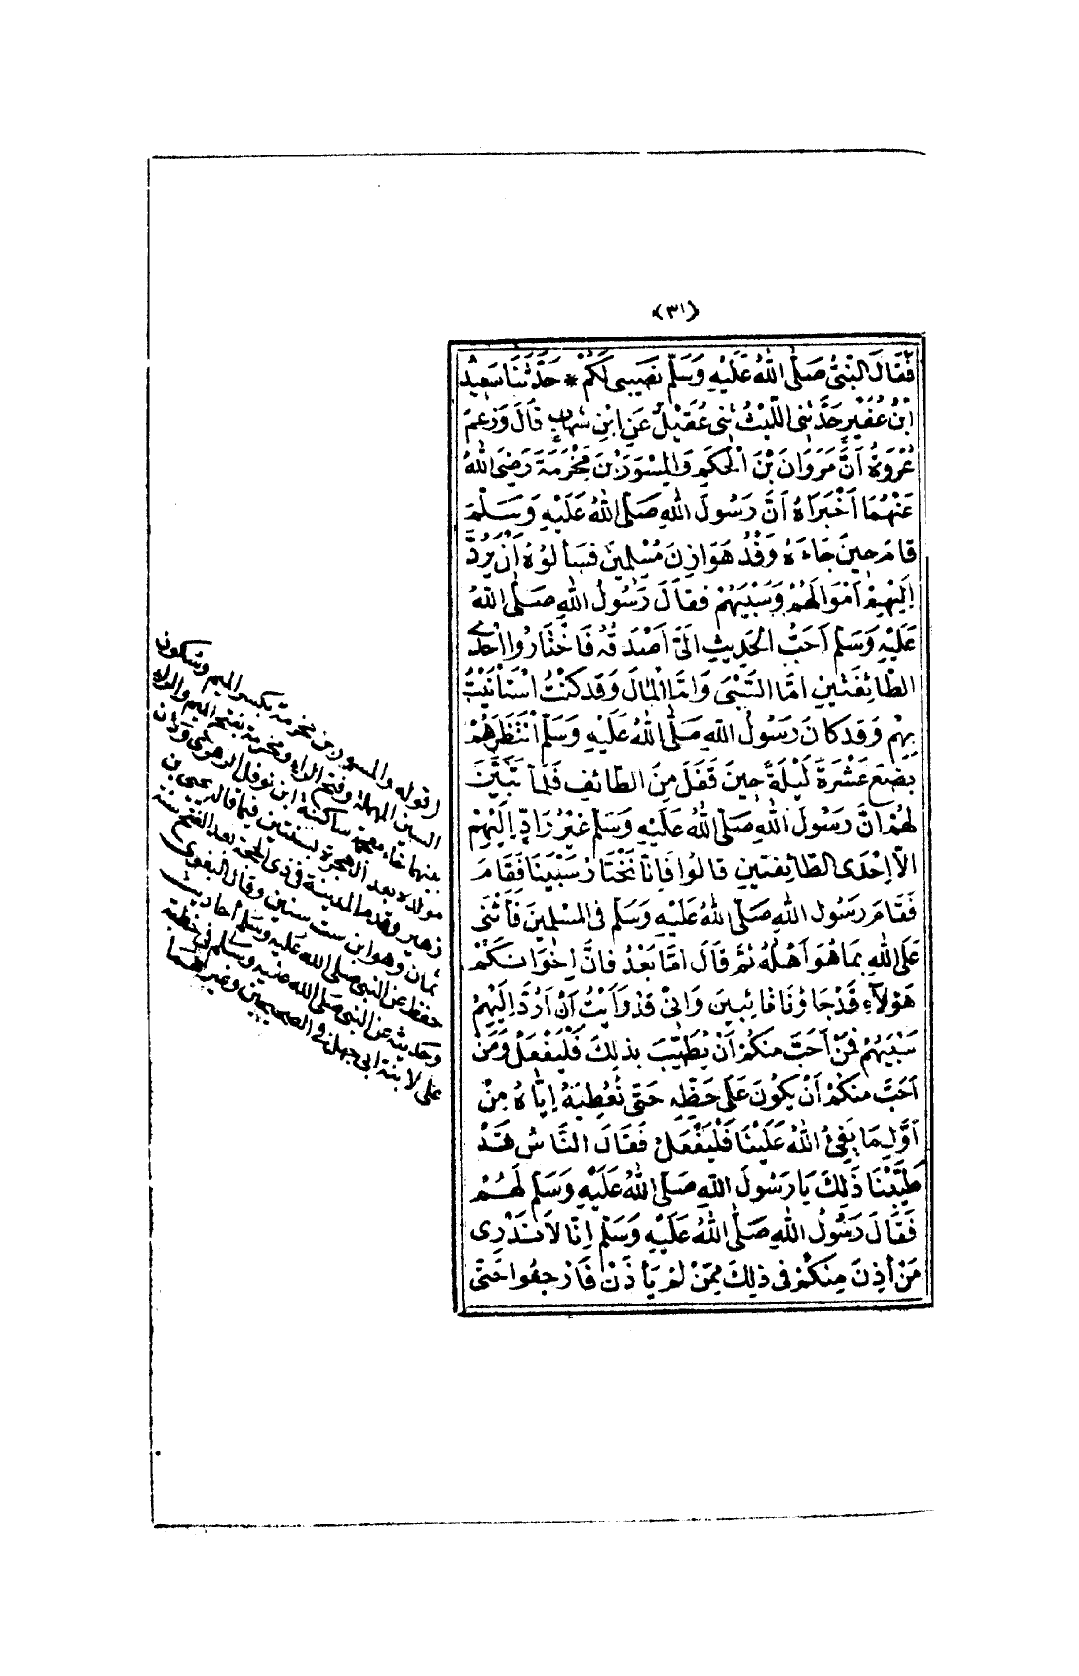 (٣١)
فَقَالَ النَّبِيُّ صَلَّى اللّٰهُ عَلَيْهِ وَسَلَّمَ نَصِيبِي لَكُمْ * حَدَّثَنَا سَعِيدُ
ابْنُ عُفَيْرٍ حَدَّثَنِي اللَّيْثُ ثَنِي عُقَيْلٌ عَنِ ابْنِ شِهَابٍ قَالَ وَزَعَمَ
عُرْوَةُ أَنَّ مَرْوَانَ بْنَ الْحَكَمِ وَالْمِسْوَرَ بْنَ مَخْرَمَةَ رَضِيَ اللّٰهُ
عَنْهُمَا أَخْبَرَاهُ أَنَّ رَسُولَ اللّٰهِ صَلَّى اللّٰهُ عَلَيْهِ وَسَلَّمَ
قَامَ حِينَ جَاءَهُ وَفْدُ هَوَازِنَ مُسْلِمِينَ فَسَأَلُوهُ أَنْ يَرُدَّ
إِلَيْهِمْ أَمْوَالَهُمْ وَسَبْيَهُمْ فَقَالَ رَسُولُ اللّٰهِ صَلَّى اللّٰهُ
عَلَيْهِ وَسَلَّمَ أَحَبُّ الْحَدِيثِ إِلَيَّ أَصْدَقُهُ فَاخْتَارُوا إِحْدَى
الطَّائِفَتَيْنِ إِمَّا السَّبْيَ وَإِمَّا الْمَالَ وَقَدْ كُنْتُ اسْتَأْنَيْتُ
بِهِمْ وَقَدْ كَانَ رَسُولُ اللّٰهِ صَلَّى اللّٰهُ عَلَيْهِ وَسَلَّمَ انْتَظَرَهُمْ
بِضْعَ عَشْرَةَ لَيْلَةً حِينَ قَفَلَ مِنَ الطَّائِفِ فَلَمَّا تَبَيَّنَ
لَهُمْ أَنَّ رَسُولَ اللّٰهِ صَلَّى اللّٰهُ عَلَيْهِ وَسَلَّمَ غَيْرُ رَادٍّ إِلَيْهِمْ
إِلَّا إِحْدَى الطَّائِفَتَيْنِ قَالُوا فَإِنَّا نَخْتَارُ سَبْيَنَا فَقَامَ
فَقَامَ رَسُولُ اللّٰهِ صَلَّى اللّٰهُ عَلَيْهِ وَسَلَّمَ فِي الْمُسْلِمِينَ فَأَثْنَى
عَلَى اللّٰهِ بِمَا هُوَ أَهْلُهُ ثُمَّ قَالَ أَمَّا بَعْدُ فَإِنَّ إِخْوَانَكُمْ
هَؤُلَاءِ قَدْ جَاؤُنَا تَائِبِينَ وَإِنِّي قَدْ رَأَيْتُ أَنْ أَرُدَّ إِلَيْهِمْ
سَبْيَهُمْ فَمَنْ أَحَبَّ مِنْكُمْ أَنْ يُطَيِّبَ بِذَلِكَ فَلْيَفْعَلْ وَمَنْ
أَحَبَّ مِنْكُمْ أَنْ يَكُونَ عَلَى حَظِّهِ حَتَّى نُعْطِيَهُ إِيَّاهُ مِنْ
أَوَّلِ مَا يُفِيءُ اللّٰهُ عَلَيْنَا فَلْيَفْعَلْ فَقَالَ النَّاسُ قَدْ
طَيَّبْنَا ذَلِكَ يَا رَسُولَ اللّٰهِ صَلَّى اللّٰهُ عَلَيْهِ وَسَلَّمَ لَهُمْ
فَقَالَ رَسُولُ اللّٰهِ صَلَّى اللّٰهُ عَلَيْهِ وَسَلَّمَ إِنَّا لَا نَدْرِي
مَنْ أَذِنَ مِنْكُمْ فِي ذَلِكَ مِمَّنْ لَمْ يَأْذَنْ فَارْجِعُوا حَتَّى
(قوله والمسور بن مخرمة بكسر الميم وسكون
السين المهملة وفتح الواو ومخرمة بفتح الميم والراء
بينهما خاء معجمة ساكنة ابن نوفل الزهري وكان
مولده بعد الهجرة بسنتين فيما قال يحيى بن
زهير وقدم المدينة في ذي الحجة بعد الفتح سنة
ثمان وهو ابن ست سنين وقال البغوي
حفظ عن النبي صلى الله عليه وسلم أحاديث
وحديثه عن النبي صلى الله عليه وسلم في خطبة
علي لابنة أبي جهل في الصحيحين وغيرهما